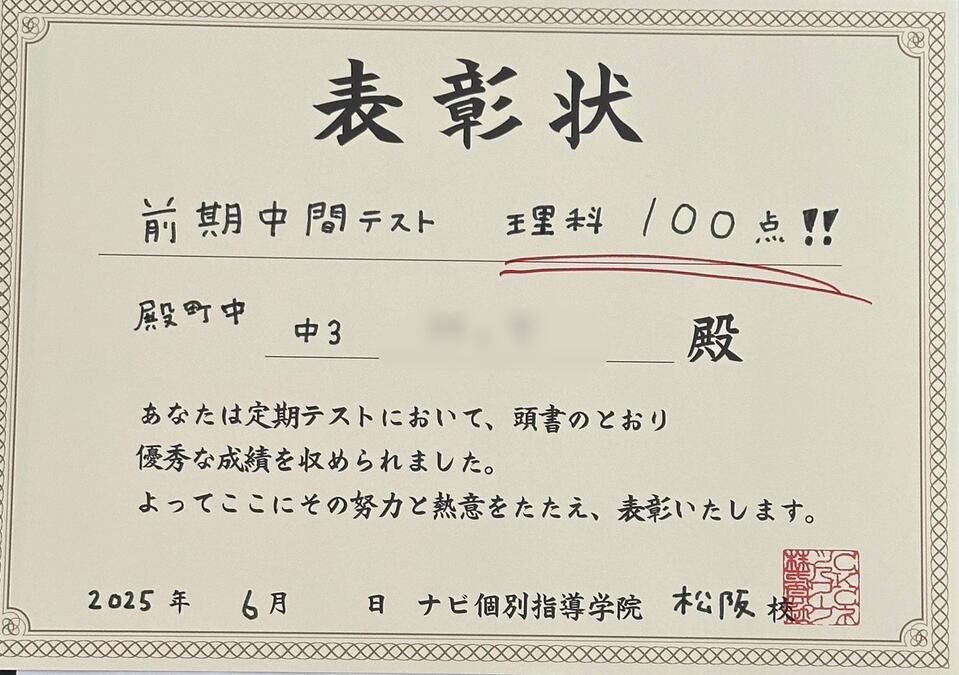 表彰状
前期中間テスト 理科 100点!!
殿町中 中3 殿
あなたは定期テストにおいて、頭書のとおり
優秀な成績を収められました。
よってここにその努力と熱意をたたえ、表彰いたします。
2025年 6月 日 ナビ個別指導学院 松阪校